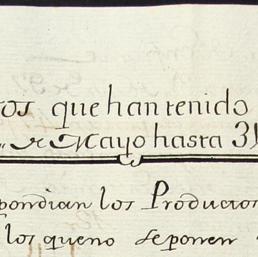 os que han tenido
Mayo hasta 31
pondian los Productos
los que no se ponen